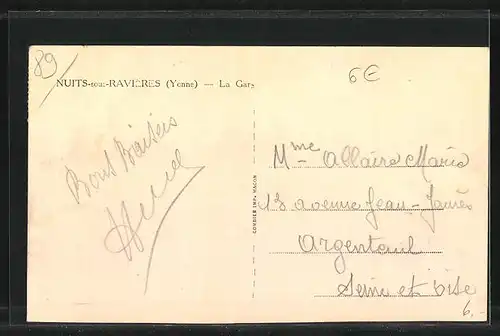 89
NUITS-sous-RAVIÈRES (Yonne) — La Gare
6€
Bons Baisers
Mme Allaire Maria
13 avenue Jean-Jaurès
Argenteuil
Seine et Oise
6,-